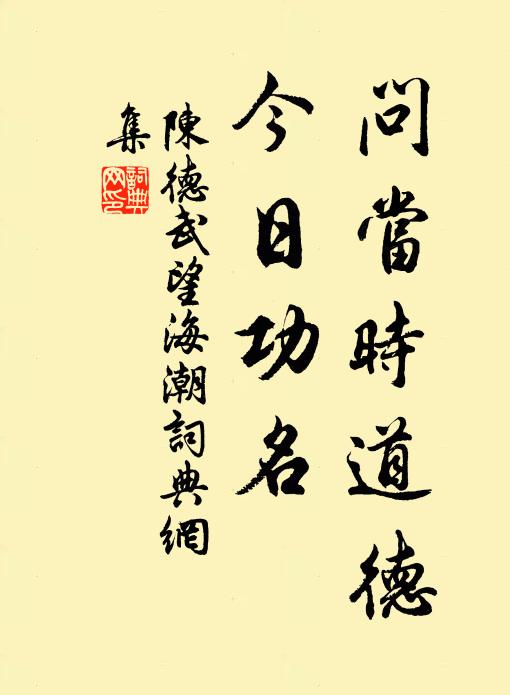 問當時道德
今日功名
陳德武望海潮詞典網
集
詞典網印